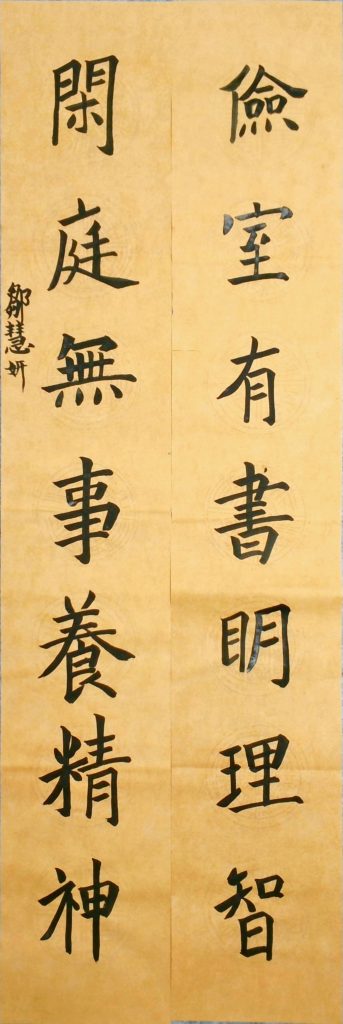 儉室有書明理智
閑庭無事養精神
鄒慧妍